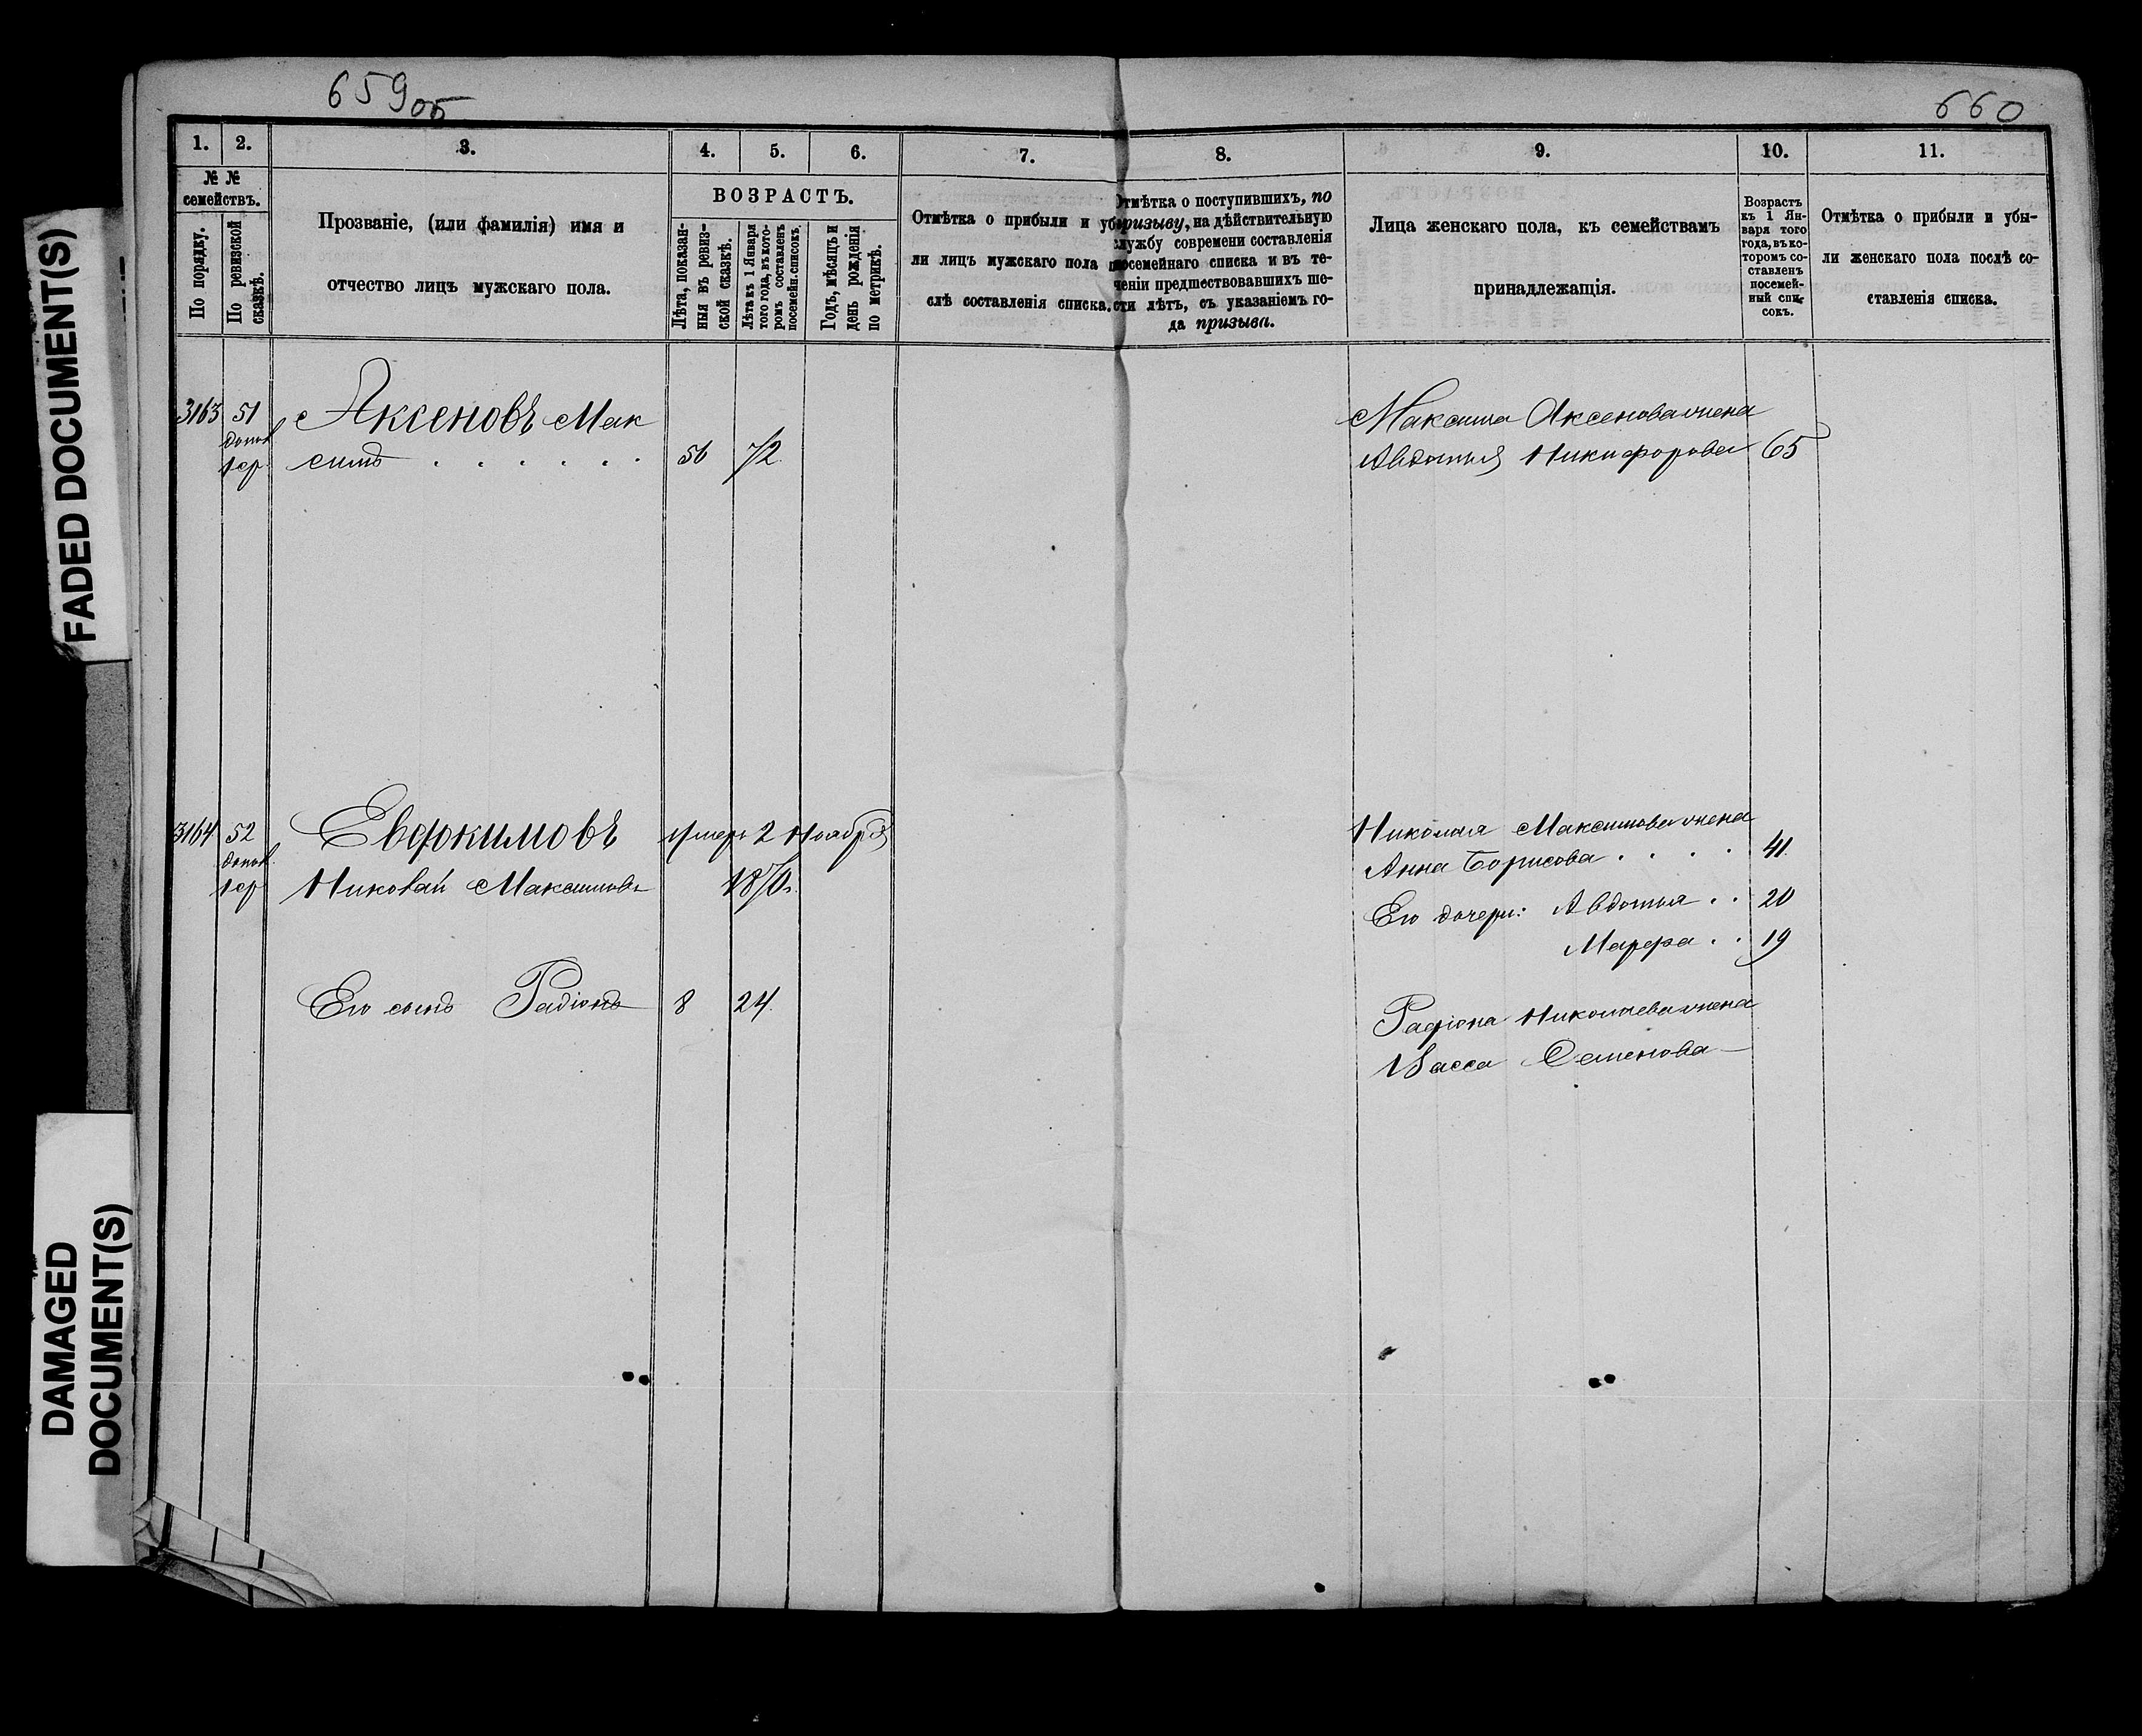 659 об
660
FADED DOCUMENT(S)
DAMAGED
DOCUMENT(S)
1. 2. 3. 4. 5. 6. 7. 8. 9. 10. 11.
№ №
семействъ.
По порядку.
По ревизской
сказкѣ.
Прозваніе, (или фамилія) имя и
отчество лицъ мужскаго пола.
ВОЗРАСТЪ.
Лѣта, показан-
ныя въ ревиз-
ской сказкѣ.
Лѣта къ 1 Января
того года, въ кото-
ромъ составленъ
посемейн. списокъ.
Годъ, мѣсяцъ и
день рожденія
по метрикѣ.
Отмѣтка о прибыли и убы-
ли лицъ мужскаго пола по-
слѣ составленія списка.
Отмѣтка о поступившихъ, по
призыву, на дѣйствительную
службу современи составленія
посемейнаго списка и въ те-
ченіи предшествовавшихъ ше-
сти лѣтъ, съ указаніемъ го-
да призыва.
Лица женскаго пола, къ семействамъ
принадлежащія.
Возрастъ
къ 1 Ян-
варя того
года, въ ко-
торомъ со-
ставленъ
посемей-
ный спи-
сокъ.
Отмѣтка о прибыли и убы-
ли женскаго пола послѣ со-
ставленія списка.
3163 51 Аксеновъ Мак
допол
1 ср симъ . . . . . . 56 72.
Максима Аксенова жена
Авдотья Никифорова 65
3164 52 Евфокимовъ Умеръ 2 Ноября
допол
1 ср Николай Максимовъ 1870г.
Его сынъ Радіонъ 8 24.
Николая Максимова жена
Анна Борисова . . . . 41.
Его дочери: Авдотья . . 20
Марфа . . 19
Радіона Николаева жена
Васса Семенова —